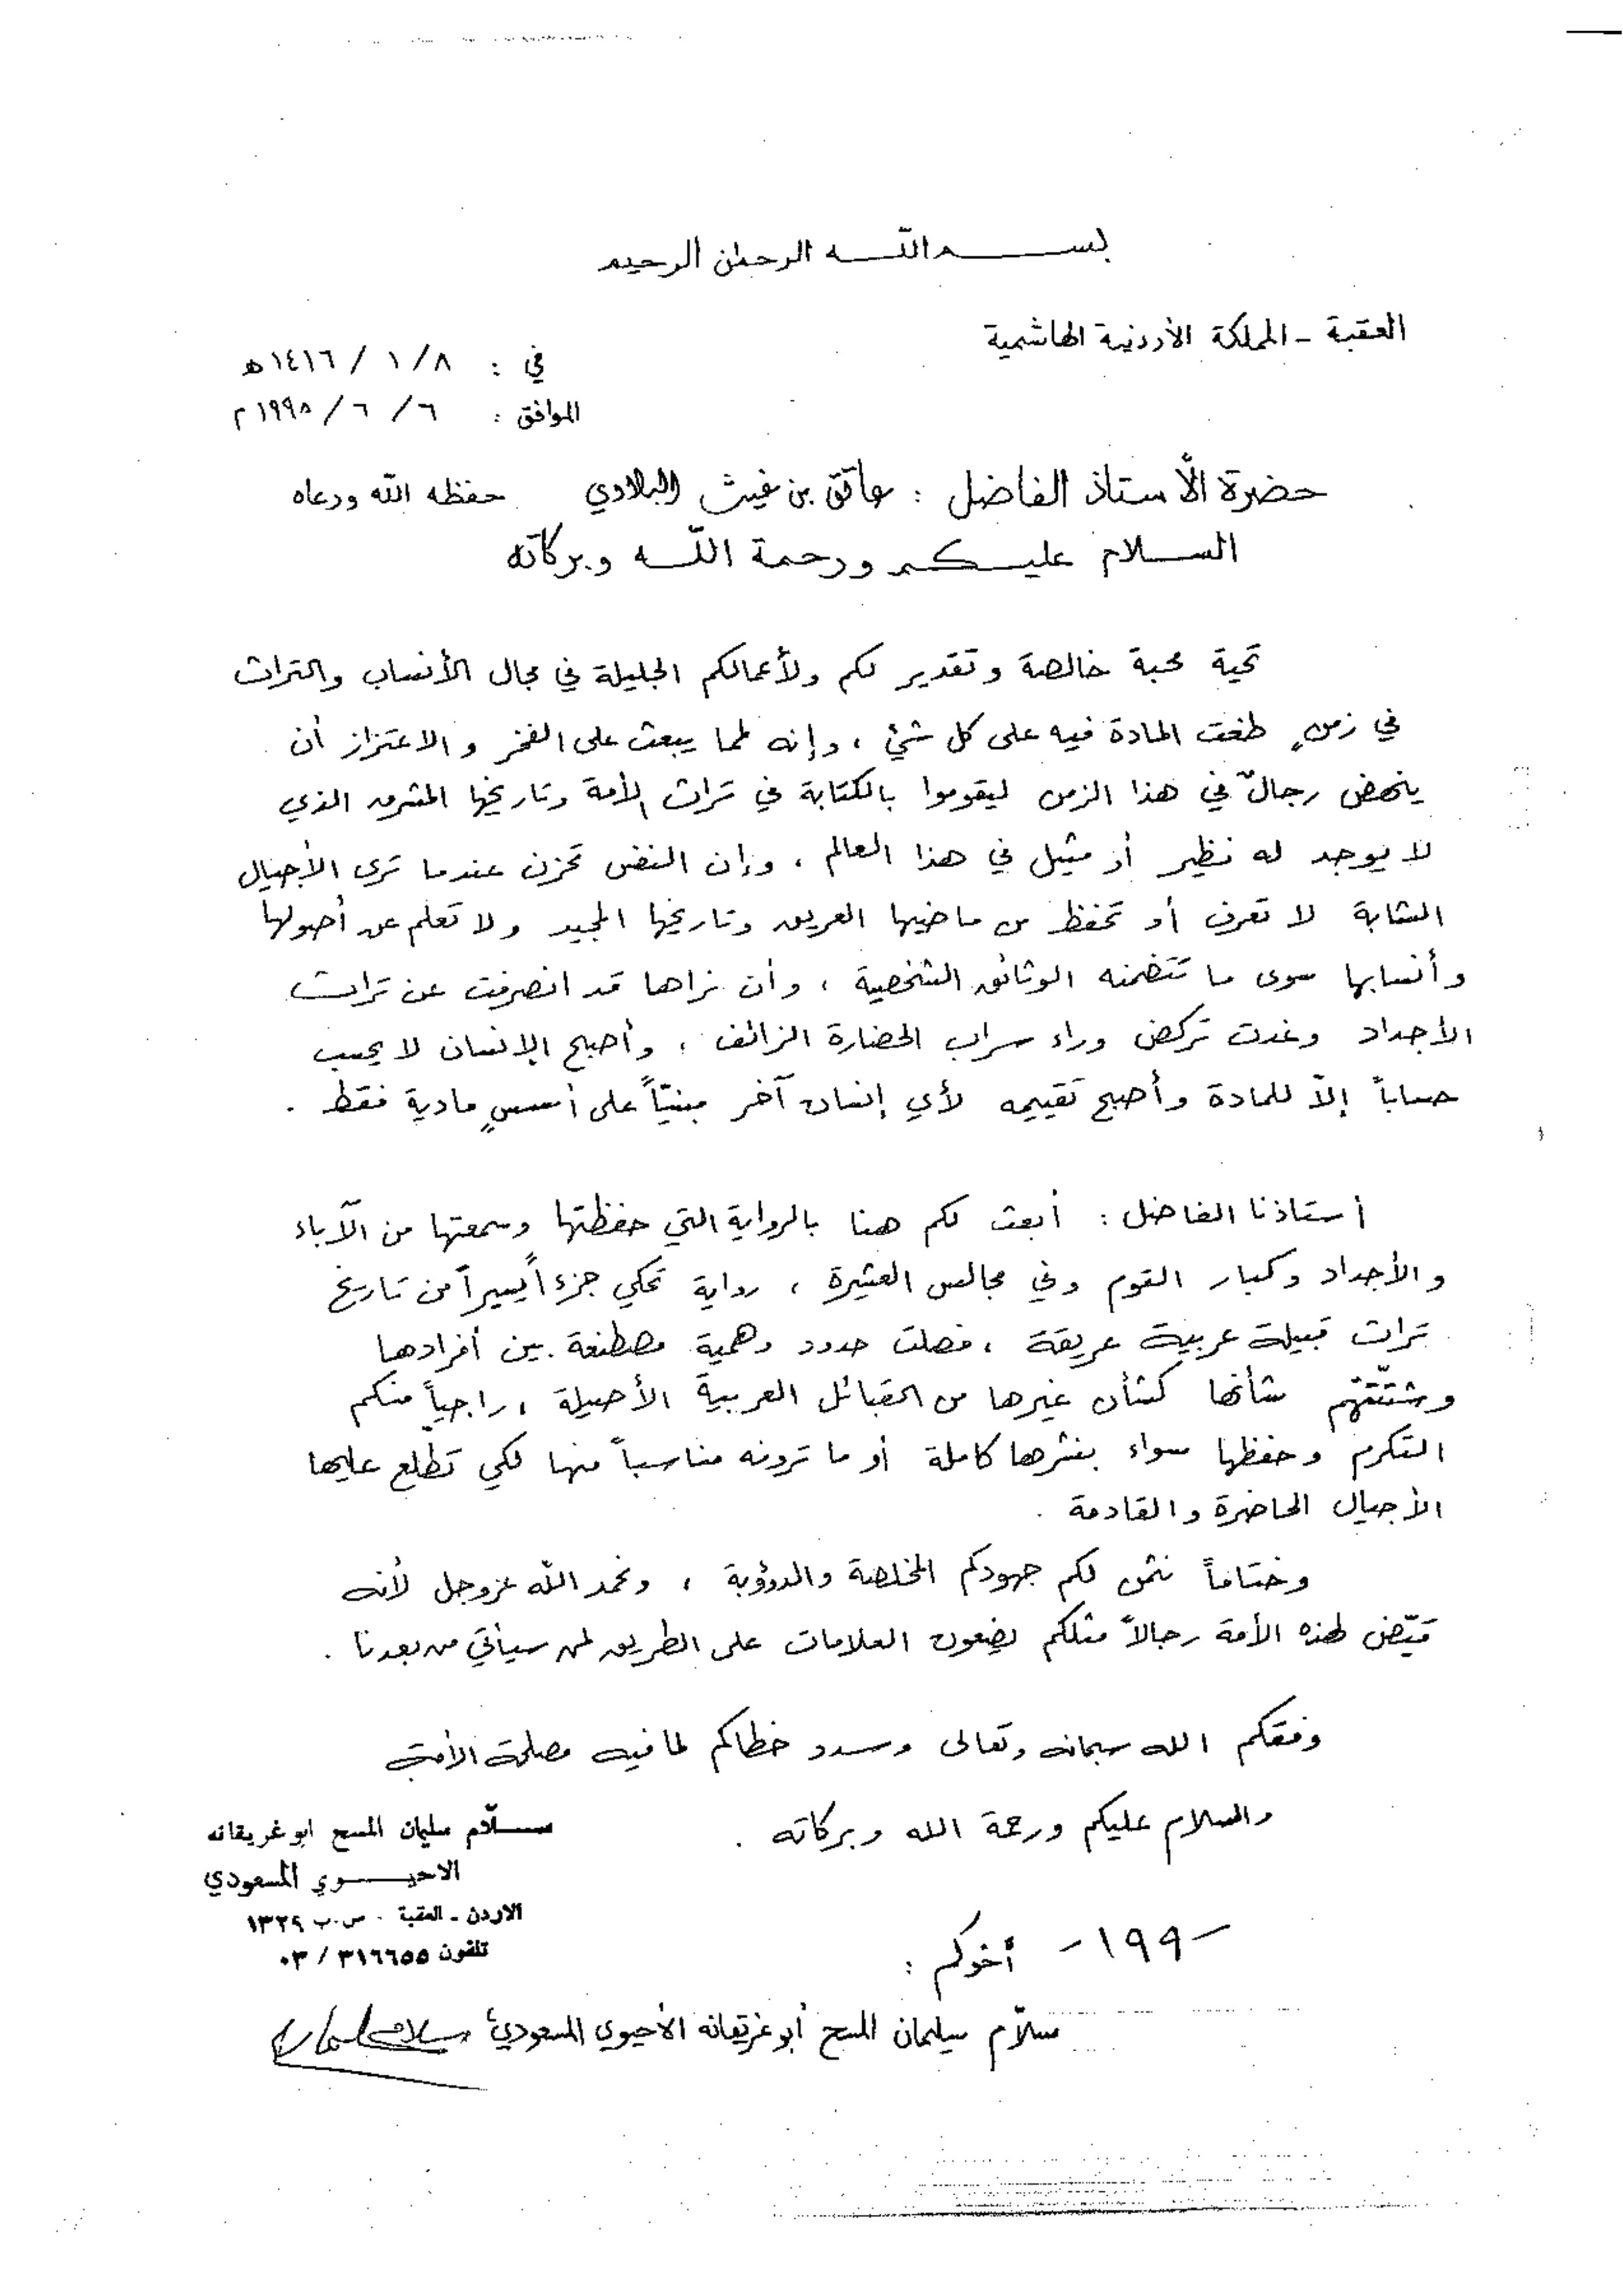 بسم الله الرحمن الرحيم
العقبة - المملكة الأردنية الهاشمية
في : ٨ / ١ / ١٤١٦ ه
الموافق : ٦ / ٦ / ١٩٩٥ م
حضرة الأستاذ الفاضل : عاتق بن غيث البلادي حفظه الله ورعاه
السلام عليكم ورحمة الله وبركاته
تحية محبة خالصة وتقدير لكم ولأعمالكم الجليلة في مجال الأنساب والتراث
في زمنٍ طغت المادة فيه على كل شئ ، وإنه لمما يبعث على الفخر والاعتزاز أن
ينهض رجالٌ في هذا الزمن ليقوموا بالكتابة في تراث الأمة وتاريخها المشرف الذي
لا يوجد له نظير أو مثيل في هذا العالم ، وإن النفس تحزن عندما ترى الأجيال
الشابة لا تعرف أو تحفظ من ماضيها العريق وتاريخها المجيد ولا تعلم عن أصولها
وأنسابها سوى ما تتضمنه الوثائق الشخصية ، وأن نراها قد انصرفت عن تراث
الأجداد وغدت تركض وراء سراب الحضارة الزائف ، وأصبح الإنسان لا يحسب
حساباً إلاّ للمادة وأصبح تقييمه لأي إنسان آخر مبنيّاً على أسسٍ مادية فقط .
أستاذنا الفاضل : أبعث لكم هنا بالرواية التي حفظتها وسمعتها من الآباء
والأجداد وكبار القوم وفي مجالس العشيرة ، رواية تحكي جزءاً يسيراً من تاريخ
تراث قبيلة عربية عريقة ، فصلت حدود وهمية مصطنعة بين أفرادها
وشتّتتهم شأنها كشأن غيرها من القبائل العربية الأصيلة ، راجياً منكم
التكرم وحفظها سواء بنشرها كاملة أو ما ترونه مناسباً منها لكي تطّلع عليها
الأجيال الحاضرة والقادمة .
وختاماً نثمن لكم جهودكم المخلصة والدوؤبة ، ونحمد الله عزوجل لأنه
قيّض لهذه الأمة رجالاً مثلكم يضعون العلامات على الطريق لمن سيأتي من بعدنا .
وفقكم الله سبحانه وتعالى وسدد خطاكم لما فيه مصلحة الأمة
والسلام عليكم ورحمة الله وبركاته .
سلاّم سليمان المسح ابو غريقانه
الاحيوي المسعودي
الاردن - العقبة - ص.ب ١٣٢٩
تلفون ٣١٦٦٥٥ / ٠٣
- ١٩٩ - أخوكم :
سلاّم سليمان المسح أبو غريقانه الأحيوي المسعودي